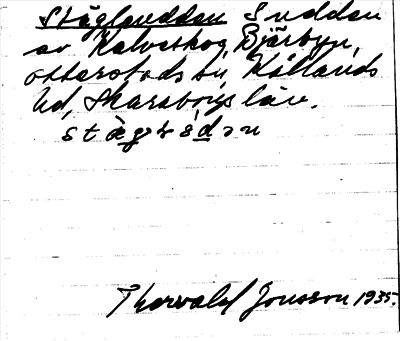 Stäglaudden S udden
av Kalvaskog, Bjärbyn,
Otterstads sn, Kållands
hd, Skaraborgs län.
Thorvald Jonsson 1935.